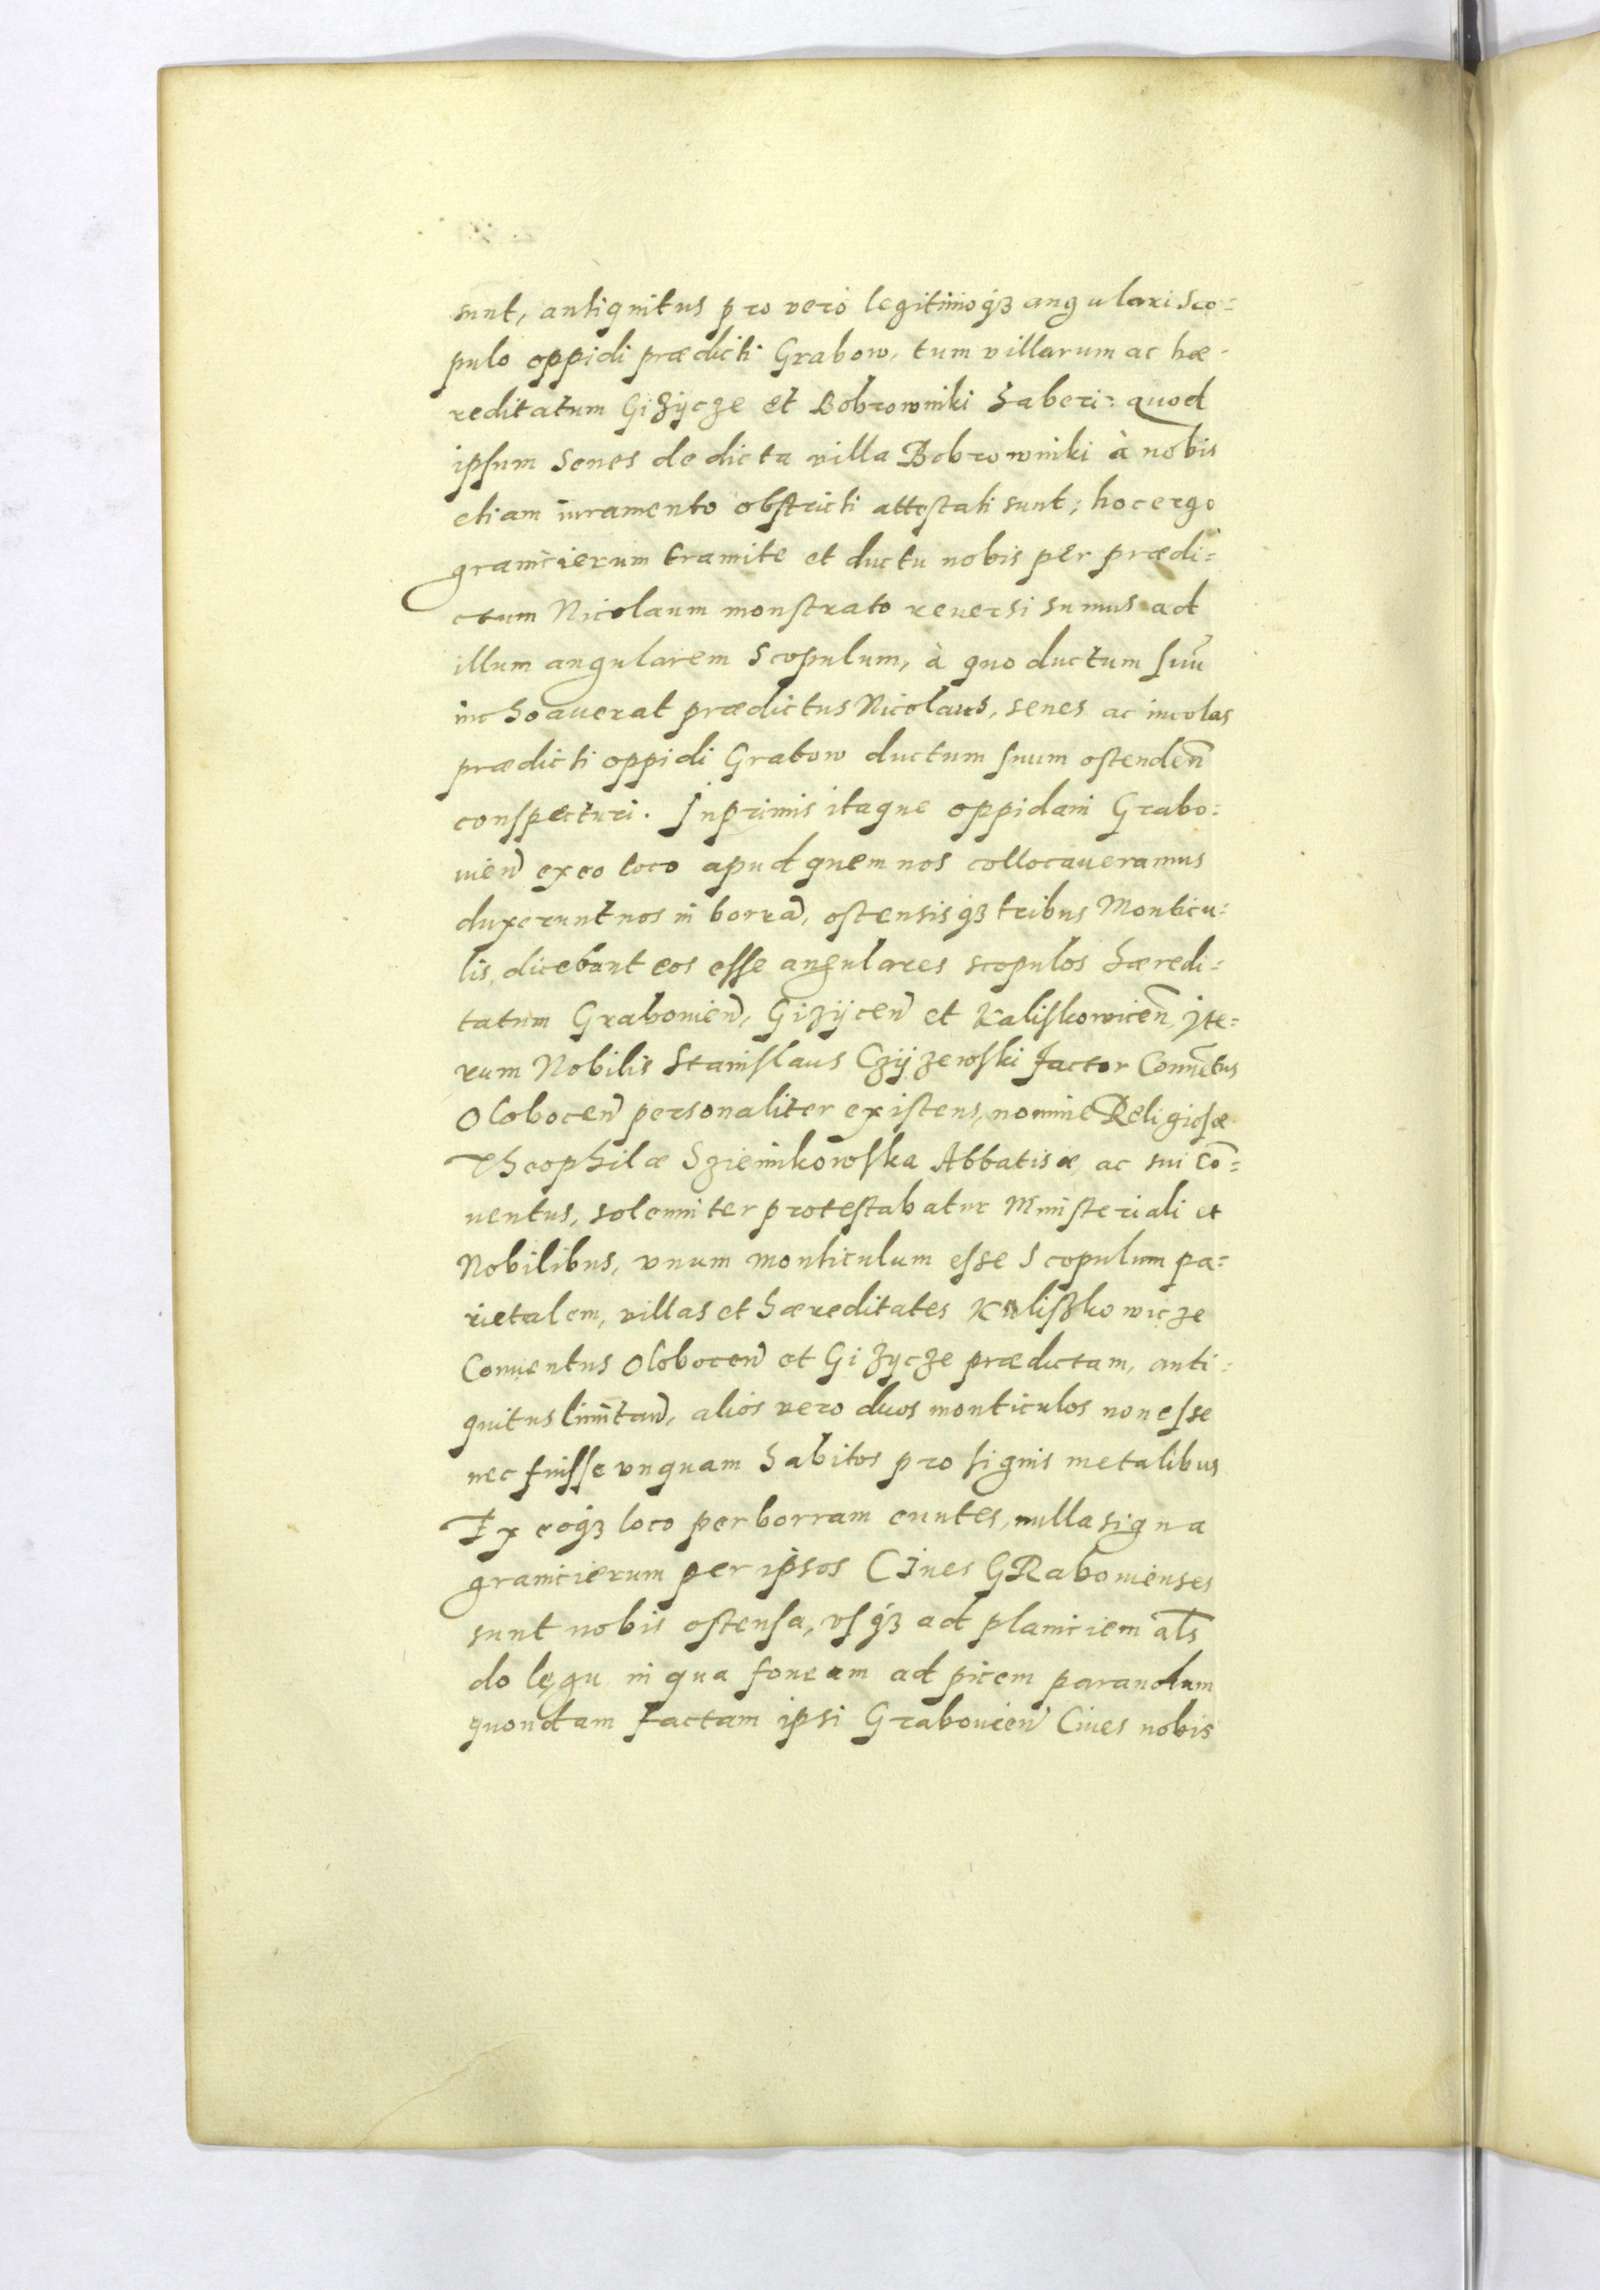 sunt, antiquitus pro vero legitimoq₃ angulari sco=
pulo oppidi prædicti Grabow, tum villarum ac hæ=
reditatum Giżÿcze et Bobrowniki haberi: quod
ipsum Senes de dicta villa Bobrowniki à nobis
etiam iuramento obstricti attestati sunt; hoc ergo
granicierum tramite et ductu nobis per prædi=
ctum Nicolaum monstrato reuersi sumus ad
illum angularem Scopulum, à quo ductum suũ
inchoauerat prædictus Nicolaus, senes ac incolas
prædicti oppidi Grabow ductum suum ostendeñ
conspecturi. Inprimis itaque oppidani Grabo=
uieñ ex eo loco apud quem nos collocaueramus
duxerunt nos in borrã, ostensisq₃ tribus Monticu=
lis, dicebant eos esse angulares scopulos hæredi=
tatum Grabouieñ, Giżÿceñ et Kaliskowiceñ, Ite=
rum Nobilis Stanislaus Czÿżewski factor Conuẽtus
Oloboceñ personaliter existens, nomine Religiosæ
Theophilæ Sziemikowska Abbatisæ, ac sui Cõ=
uentus, solemniter protestabatur Ministeriali et
Nobilibus, vnum monticulum esse Scopulum pa=
rietalem, villas et hæreditates Kaliszkowicze
Conuentus Oloboceñ et Giżycze prædictam, anti=
quitus limitañ, alios vero duos monticulos non esse
nec fuisse vnquam habitos pro signis metalibus
Ex eoq₃ loco per borram euntes, nulla signa
granicierum per ipsos Ciues GRabouienses
sunt nobis ostensa, vsq₃ ad planiciem als
do lęgu in qua foueam ad picem parandum
quondam factam ipsi Grabouieñ Ciues nobis